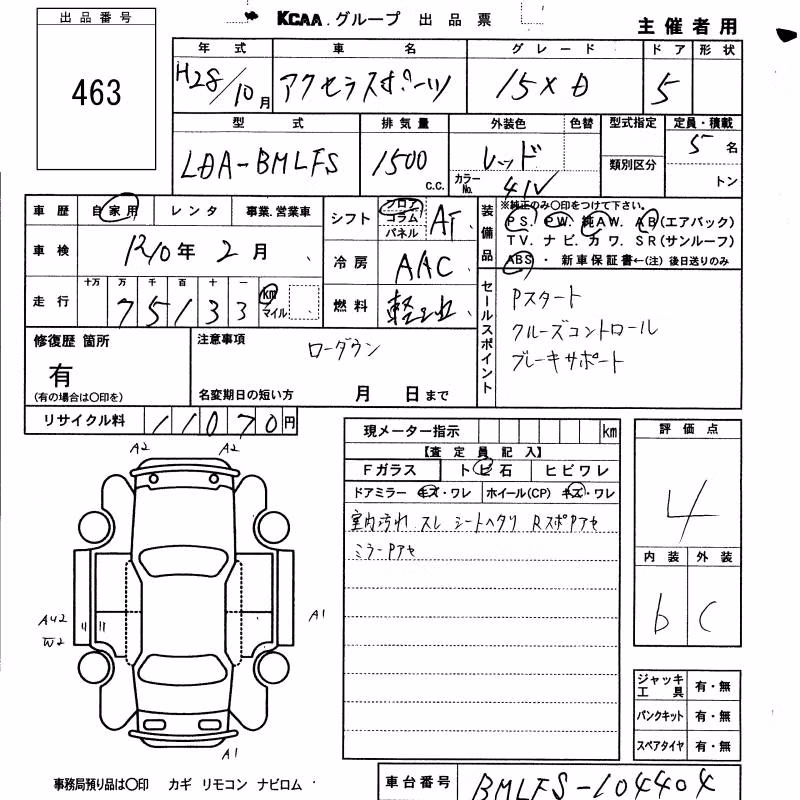 KCAA.グループ 出品票
主催者用
出品番号
463
年式 車名 グレード ドア 形状
H28/10月 アクセラスポーツ 15XD 5
型式 排気量 外装色 色替 型式指定 定員・積載
LDA-BMLFS 1500 C.C. レッド 5名
カラーNo. 41V 類別区分 トン
車歴 自家用 レンタ 事業.営業車
車検 R10年 2月
走行 十万 万 千 百 十 一
75133 km マイル
シフト フロア コラム パネル AT
冷房 AAC
燃料 軽油
装備品
※純正のみ〇印をつけて下さい。
PS. PW. 純AW. AB(エアバック)
TV. ナビ. カワ. SR(サンルーフ)
ABS・新車保証書←(注)後日送りのみ
セールスポイント
Pスタート
クルーズコントロール
ブレーキサポート
修復歴 箇所
有
(有の場合は〇印を)
注意事項
ローダウン
名変期日の短い方 月 日まで
リサイクル料 11070円
現メーター指示 km
【査定員記入】
Fガラス トビ石 ヒビワレ
ドアミラー キズ・ワレ ホイール(CP) キズ・ワレ
室内汚れ スレ シートヘタリ RスポPアセ
ミラーPアセ
評価点
4
内装 外装
b C
ジャッキ工具 有・無
パンクキット 有・無
スペアタイヤ 有・無
A2 A2
AU2
W2
A1
A1
事務局預り品は〇印 カギ リモコン ナビロム
車台番号 BMLFS-104404